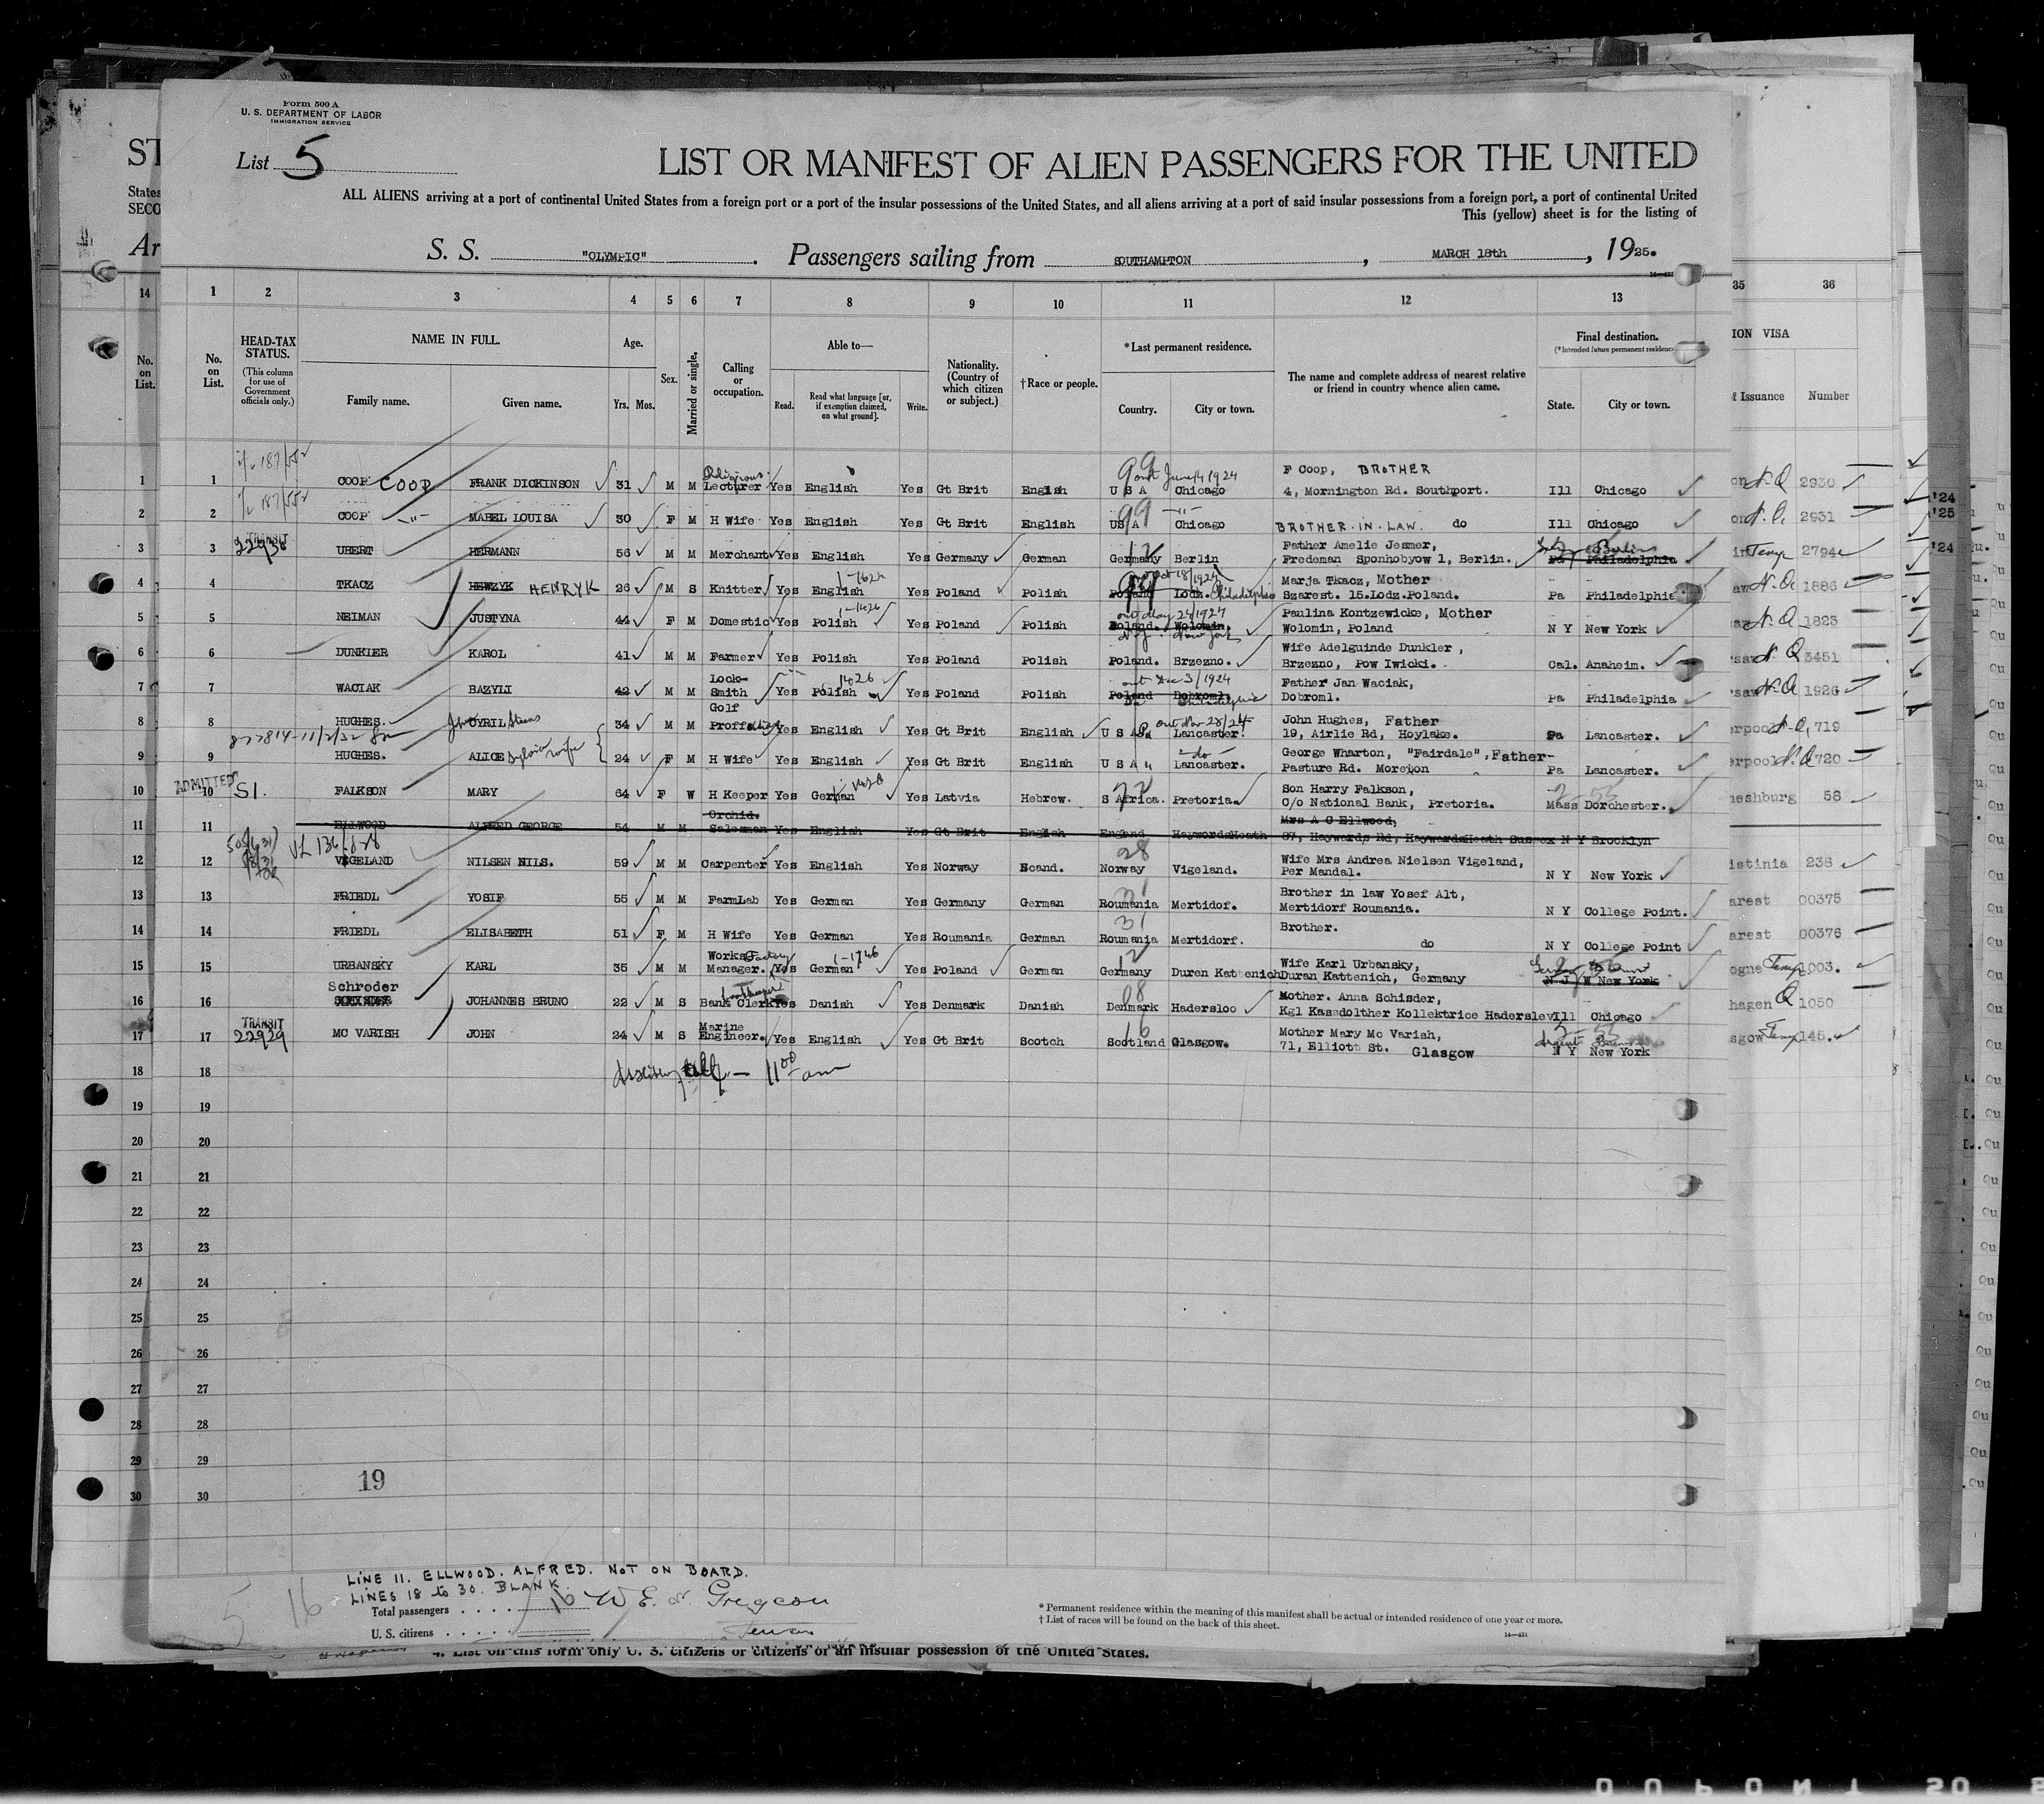 Form 500 A
U. S. DEPARTMENT OF LABOR
IMMIGRATION SERVICE
List 5
LIST OR MANIFEST OF ALIEN PASSENGERS FOR THE UNITED
ALL ALIENS arriving at a port of continental United States from a foreign port or a port of the insular possessions of the United States, and all aliens arriving at a port of said insular possessions from a foreign port, a port of continental United
This (yellow) sheet is for the listing of
S. S. "OLYMPIC". Passengers sailing from SOUTHAMPTON, MARCH 18th, 1925.
1 2 3 4 5 6 7 8 9 10 11 12 13
No. on List.
HEAD-TAX STATUS.
(This column for use of Government officials only.)
NAME IN FULL.
Family name. Given name.
Age.
Yrs. Mos.
Sex.
Married or single.
Calling or occupation.
Able to—
Read. Read what language [or, if exemption claimed, on what ground]. Write.
Nationality. (Country of which citizen or subject.)
†Race or people.
*Last permanent residence.
Country. City or town.
The name and complete address of nearest relative or friend in country whence alien came.
Final destination.
(*Intended future permanent residence
State. City or town.
ION VISA
f Issuance Number
14 35 36
1 COOP COOP FRANK DICKINSON 31 M M Religious Lecturer Yes English Yes Gt Brit English 99 out June 14 1924 U S A Chicago F Coop, BROTHER 4, Mornington Rd. Southport. Ill Chicago N.Q 2930
2 COOP -"- MABEL LOUISA 30 F M H Wife Yes English Yes Gt Brit English 99 USA Chicago BROTHER-IN-LAW. do Ill Chicago 2931
3 TRANSIT UBERT HERMANN 56 M M Merchant Yes English Yes Germany German Germany 12 Berlin Father Amelie Jesmer, Fredeman Sponhobyow 1, Berlin. Berlin Philadelphia Temp 2794
4 TKACZ HEWZYK HENRYK 26 M S Knitter Yes English Yes Poland Polish Poland Lodz. Philadelphia Marja Tkacz, Mother Szarest. 15.Lodz.Poland. Pa Philadelphia N.Q 1886
5 NEIMAN JUSTYNA 44 F M Domestic Yes Polish Yes Poland Polish out May 24/1924 Poland. Wolomin. N.Y. New York Paulina Kontzewicke, Mother Wolomin, Poland N Y New York N.Q 1823
6 DUNKIER KAROL 41 M M Farmer Yes Polish Yes Poland Polish Poland. Brzezno. Wife Adelguinde Dunkler, Brzezno, Pow Iwicki. Cal. Anaheim. Q 3451
7 WACIAK BAZYLI 42 M M Lock-Smith Yes Polish Yes Poland Polish out Dec 3/1924 Poland Dobroml. Pa Philadelphia Father Jan Waciak, Dobroml. Pa Philadelphia N.Q 1926
8 HUGHES. CYRIL 34 M M Golf Proff Yes English Yes Gt Brit English U S A Pa out Nov 28/24 Lancaster. John Hughes, Father 19, Airlie Rd, Hoylake. Pa Lancaster. 719
9 HUGHES. ALICE Sylvia wife 24 F M H Wife Yes English Yes Gt Brit English U S A -do- Lancaster. George Wharton, "Fairdale", Father- Pasture Rd. Moreton Pa Lancaster. 720
10 ADMITTED SI. FALKSON MARY 64 F W H Keeper Yes German Yes Latvia Hebrew. S Africa. Pretoria. Son Harry Falkson, C/o National Bank, Pretoria. Mass Dorchester. 58
11 ELLWOOD ALFRED GEORGE 54 M M Orchid. Salesman Yes English Yes Gt Brit English England HaywordsHeath Mrs A C Ellwood, 87, Haywards Rd, HaywardsHeath Sussex N Y Brooklyn
12 VIGELAND NILSEN NILS. 59 M M Carpenter Yes English Yes Norway Scand. 28 Norway Vigeland. Wife Mrs Andrea Nielsen Vigeland, Per Mandal. N Y New York istinia 238
13 FRIEDL YOSIF 55 M M FarmLab Yes German Yes Germany German 31 Roumania Mertidof. Brother in law Yosef Alt, Mertidorf Roumania. N Y College Point. arest 00375
14 FRIEDL ELISABETH 51 F M H Wife Yes German Yes Roumania German 31 Roumania Mertidorf. Brother. do N Y College Point arest 00376
15 URBANSKY KARL 35 M M Works Factory Manager. Yes German Yes Poland German 12 Germany Duren Kattenich Wife Karl Urbansky, Duran Kattenich, Germany N J W New York ogne Temp 1003.
16 Schroder JOHANNES BRUNO 22 M S Bank Clerk Yes Danish Yes Denmark Danish 08 Denmark Hadersloo Mother. Anna Schisder, Kgl Kasadolther Kollektrice Haderslev Ill Chicago hagen Q 1050
17 TRANSIT 22929 MC VARISH JOHN 24 M S Marine Engineer. Yes English Yes Gt Brit Scotch 16 Scotland Glasgow. Mother Mary Mc Varish, 71, Elliott St. Glasgow N Y New York sgow Temp 145.
18 11 00 am
19
20
21
22
23
24
25
26
27
28
29
30
19
LINE 11. ELLWOOD. ALFRED. NOT ON BOARD.
LINES 18 to 30. BLANK.
Total passengers . . . . 16
U. S. citizens . . . . .
5 16
* Permanent residence within the meaning of this manifest shall be actual or intended residence of one year or more.
† List of races will be found on the back of this sheet.
14—431
4. List on this form only U. S. citizens or citizens of an insular possession of the United States.